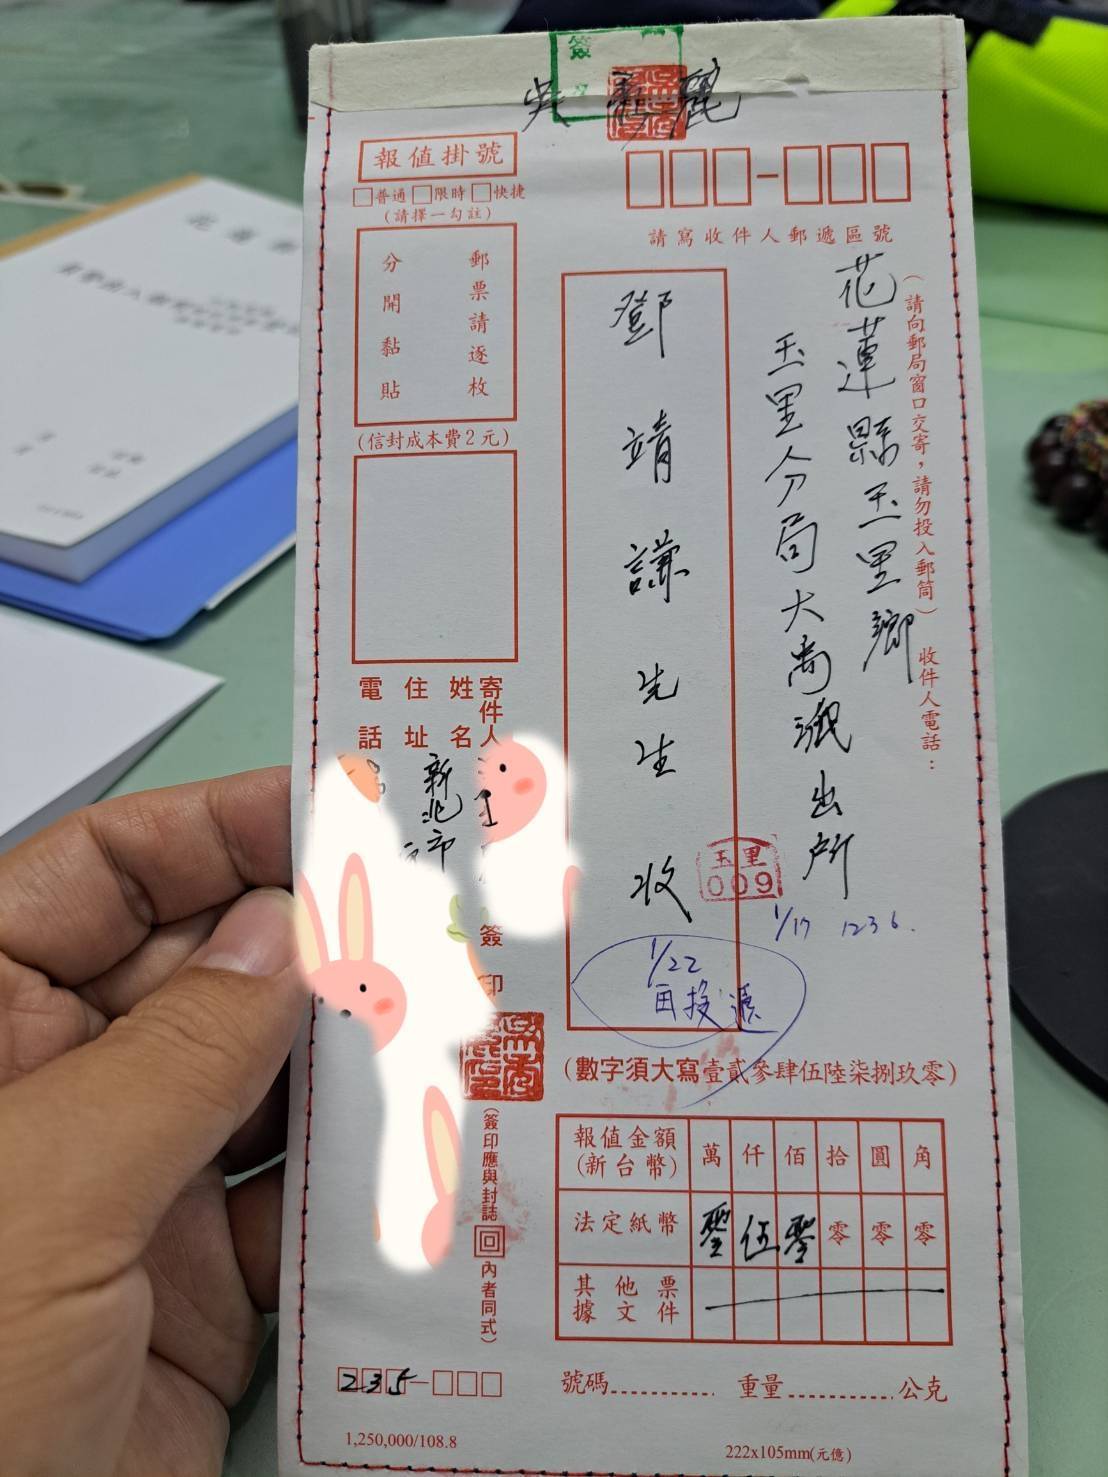 簽
吳 麗
報值掛號
□普通□限時□快捷
(請擇一勾註)
郵票請逐枚
分開黏貼
(信封成本費2元)
□□□-□□□
請寫收件人郵遞區號
(請向郵局窗口交寄,請勿投入郵筒) 收件人電話:
花蓮縣玉里鄉
玉里分局大禹派出所
鄧靖謙先生 收
玉里
009
1/17 1236.
1/22
再投遞
寄件人
姓名
住址
電話
新北市
簽印
(簽印應與封誌回內者同式)
(數字須大寫壹貳參肆伍陸柒捌玖零)
報值金額(新台幣) 萬 仟 佰 拾 圓 角
法定紙幣 零 伍 零 零 零 零
其他票據文件
235-□□□
號碼 重量 公克
1,250,000/108.8
222x105mm(元億)